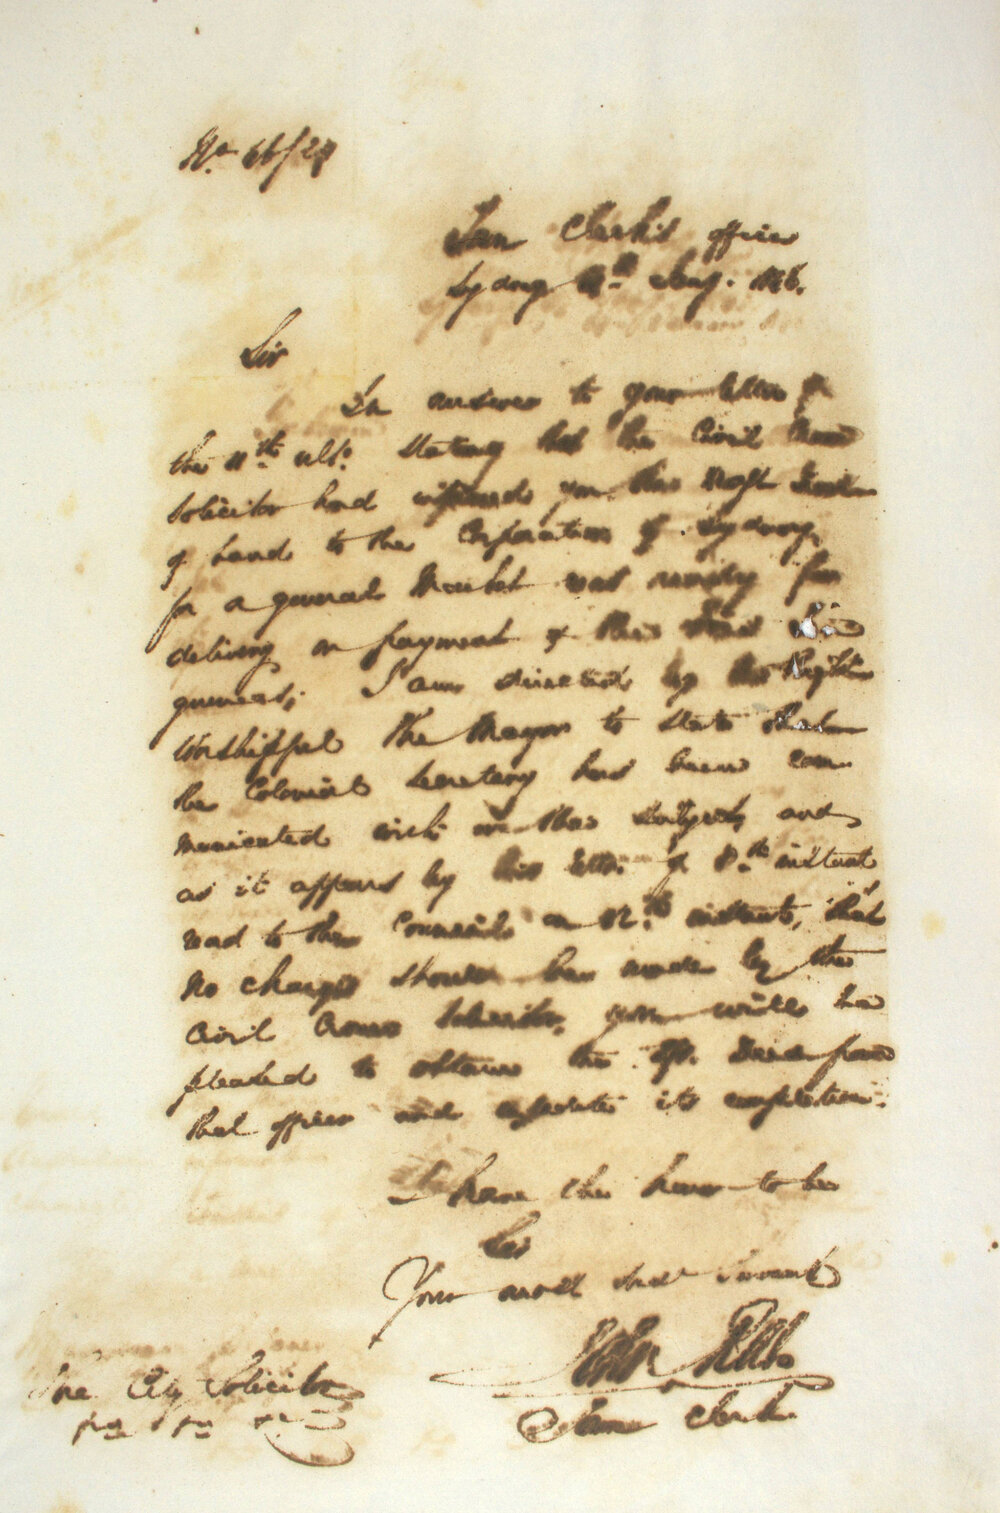 No. 46/29
Town Clerk's office
Sydney Jany. 1846.
Sir
In answer to your letter of
the 11th ulto. stating that the Civil Crown
Solicitor had informed you the Draft Deed
of Land to the Corporation of Sydney,
for a general Market was ready for
delivery on payment of the
guineas; I am directed by the Right
Worshipful the Mayor to state that
the Colonial Secretary has been com
municated with on the subject, and
as it appears by his letter of 8th instant
read to the Council on 12th instant, that
no charge should be made by the
Civil Crown Solicitor, you will be
pleased to obtain the Dft. Deed from
that officer and expedite its completion.
I have the honor to be
Sir
Your most obdt Servant
John Rae
Town Clerk
The City Solicitor